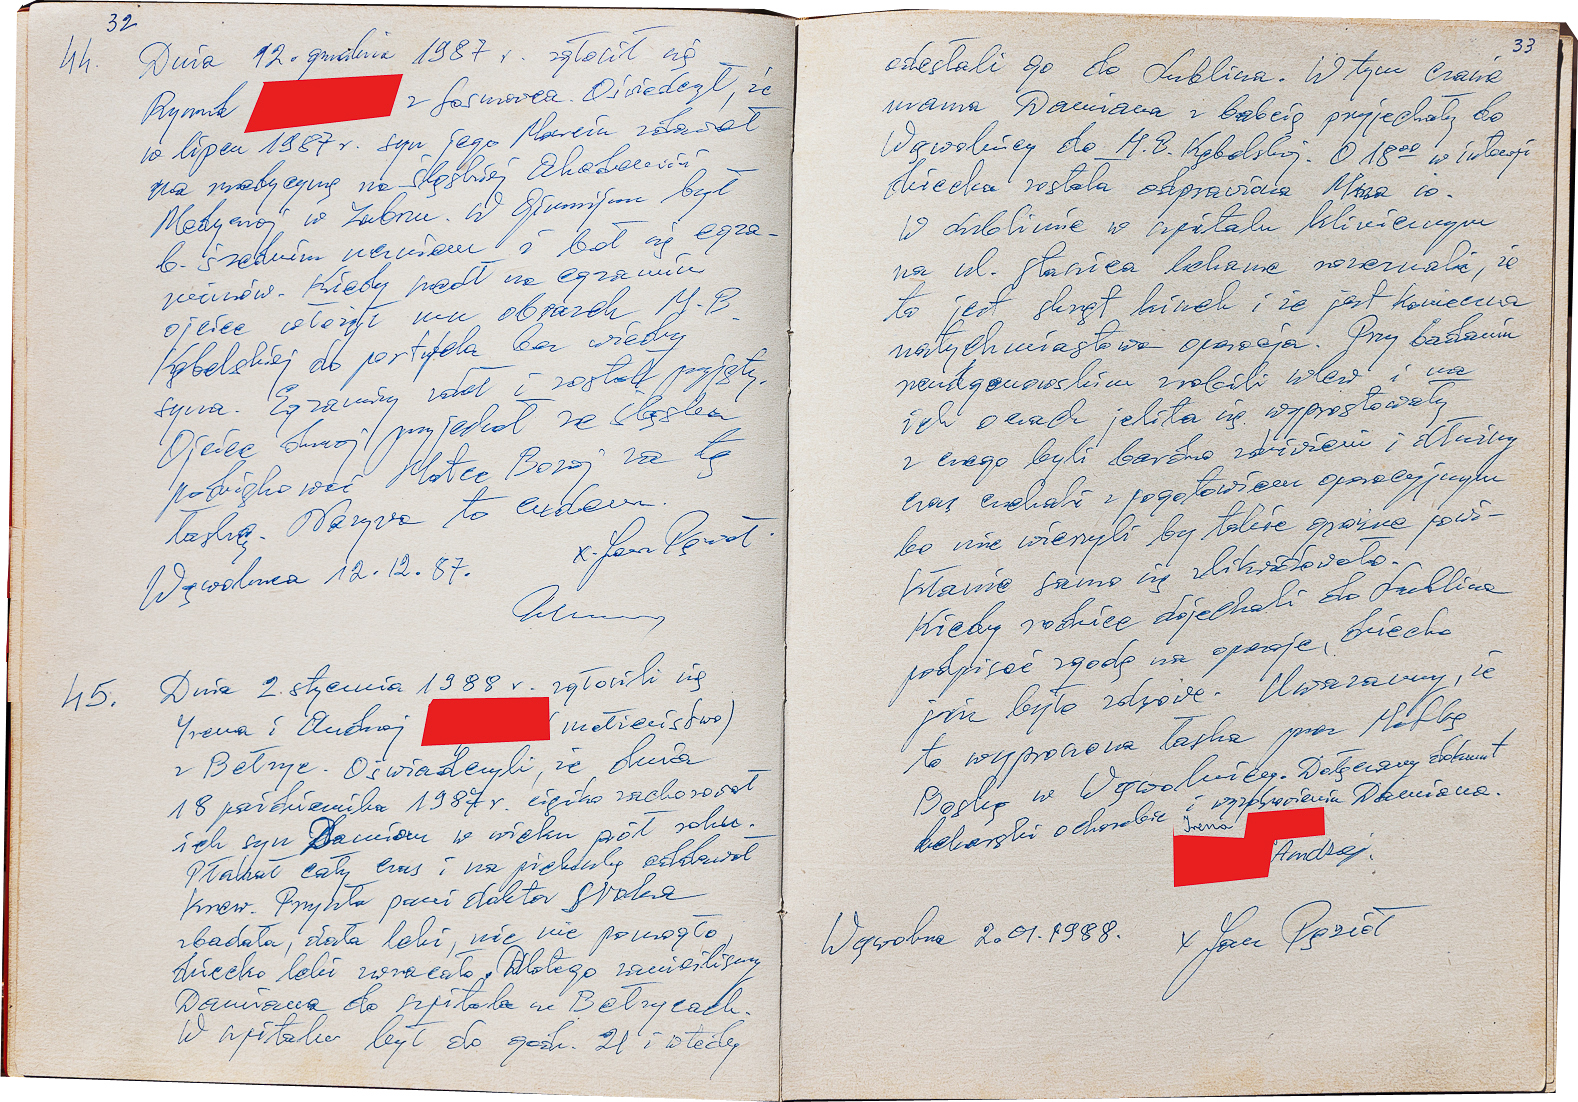 32
44. Dnia 12. grudnia 1987 r. zgłosił się
Rynnik z Gosniowca. Oświadczył, że
w lipcu 1987 r. syn jego Marcin zdawał
na medycynę na Śląskiej Akademii
Medycznej w Zabrzu. W Gimnazjum był
b. średnim uczniem i bał się egza-
minów. Kiedy szedł na egzamin
ojciec włożył mu obrazek M. B.
Kębelskiej do portfela bez wiedzy
syna. Egzaminy zdał i został przyjęty.
Ojciec dzisiaj przyjechał ze Śląska
podziękować Matce Bożej za tę
łaskę. Nazywa to cudem.
x. Jan Pęzioł
Wąwolnica 12.12.87.
45. Dnia 2. stycznia 1988 r. zgłosili się
Irena i Andrzej (małżeństwo)
z Bełżyc. Oświadczyli, że dnia
18 października 1987 r. ciężko zachorował
ich syn Damian w wieku pół roku.
Płakał cały czas i na pieluszkę oddawał
krew. Przyszła pani doktor
zbadała, dała leki, nic nie pomogło,
dziecko leki zwracało. Dlatego zanieśliśmy
Damiana do szpitala w Bełżycach.
W szpitalu był do godz. 21 i wtedy
33
odesłali go do Lublina. W tym czasie
mama Damiana z babcią przyjechały do
Wąwolnicy do M.B. Kębelskiej. O 18⁰⁰ w intencji
dziecka została odprawiona Msza św.
W Lublinie w szpitalu klinicznym
na ul. Staszica lekarze rozeznali, że
to jest skręt kiszek i że jest konieczna
natychmiastowa operacja. Przy badaniu
rentgenowskim zrobili wlew i na
ich oczach jelita się wyprostowały
z czego byli bardzo zdziwieni i dłuższy
czas czekali z pogotowiem operacyjnym
bo nie wierzyli by takie groźne powi-
kłanie samo się zlikwidowało.
Kiedy rodzice dojechali do Lublina
podpisać zgodę na operację, dziecko
już było zdrowe. Uważamy, że
to wyproszona łaska przez Matkę
Boską w Wąwolnicy. Dołączamy dokument
lekarski o chorobie i wyzdrowieniu Damiana.
Irena
Andrzej.
Wąwolnica 2.01.1988. x Jan Pęzioł